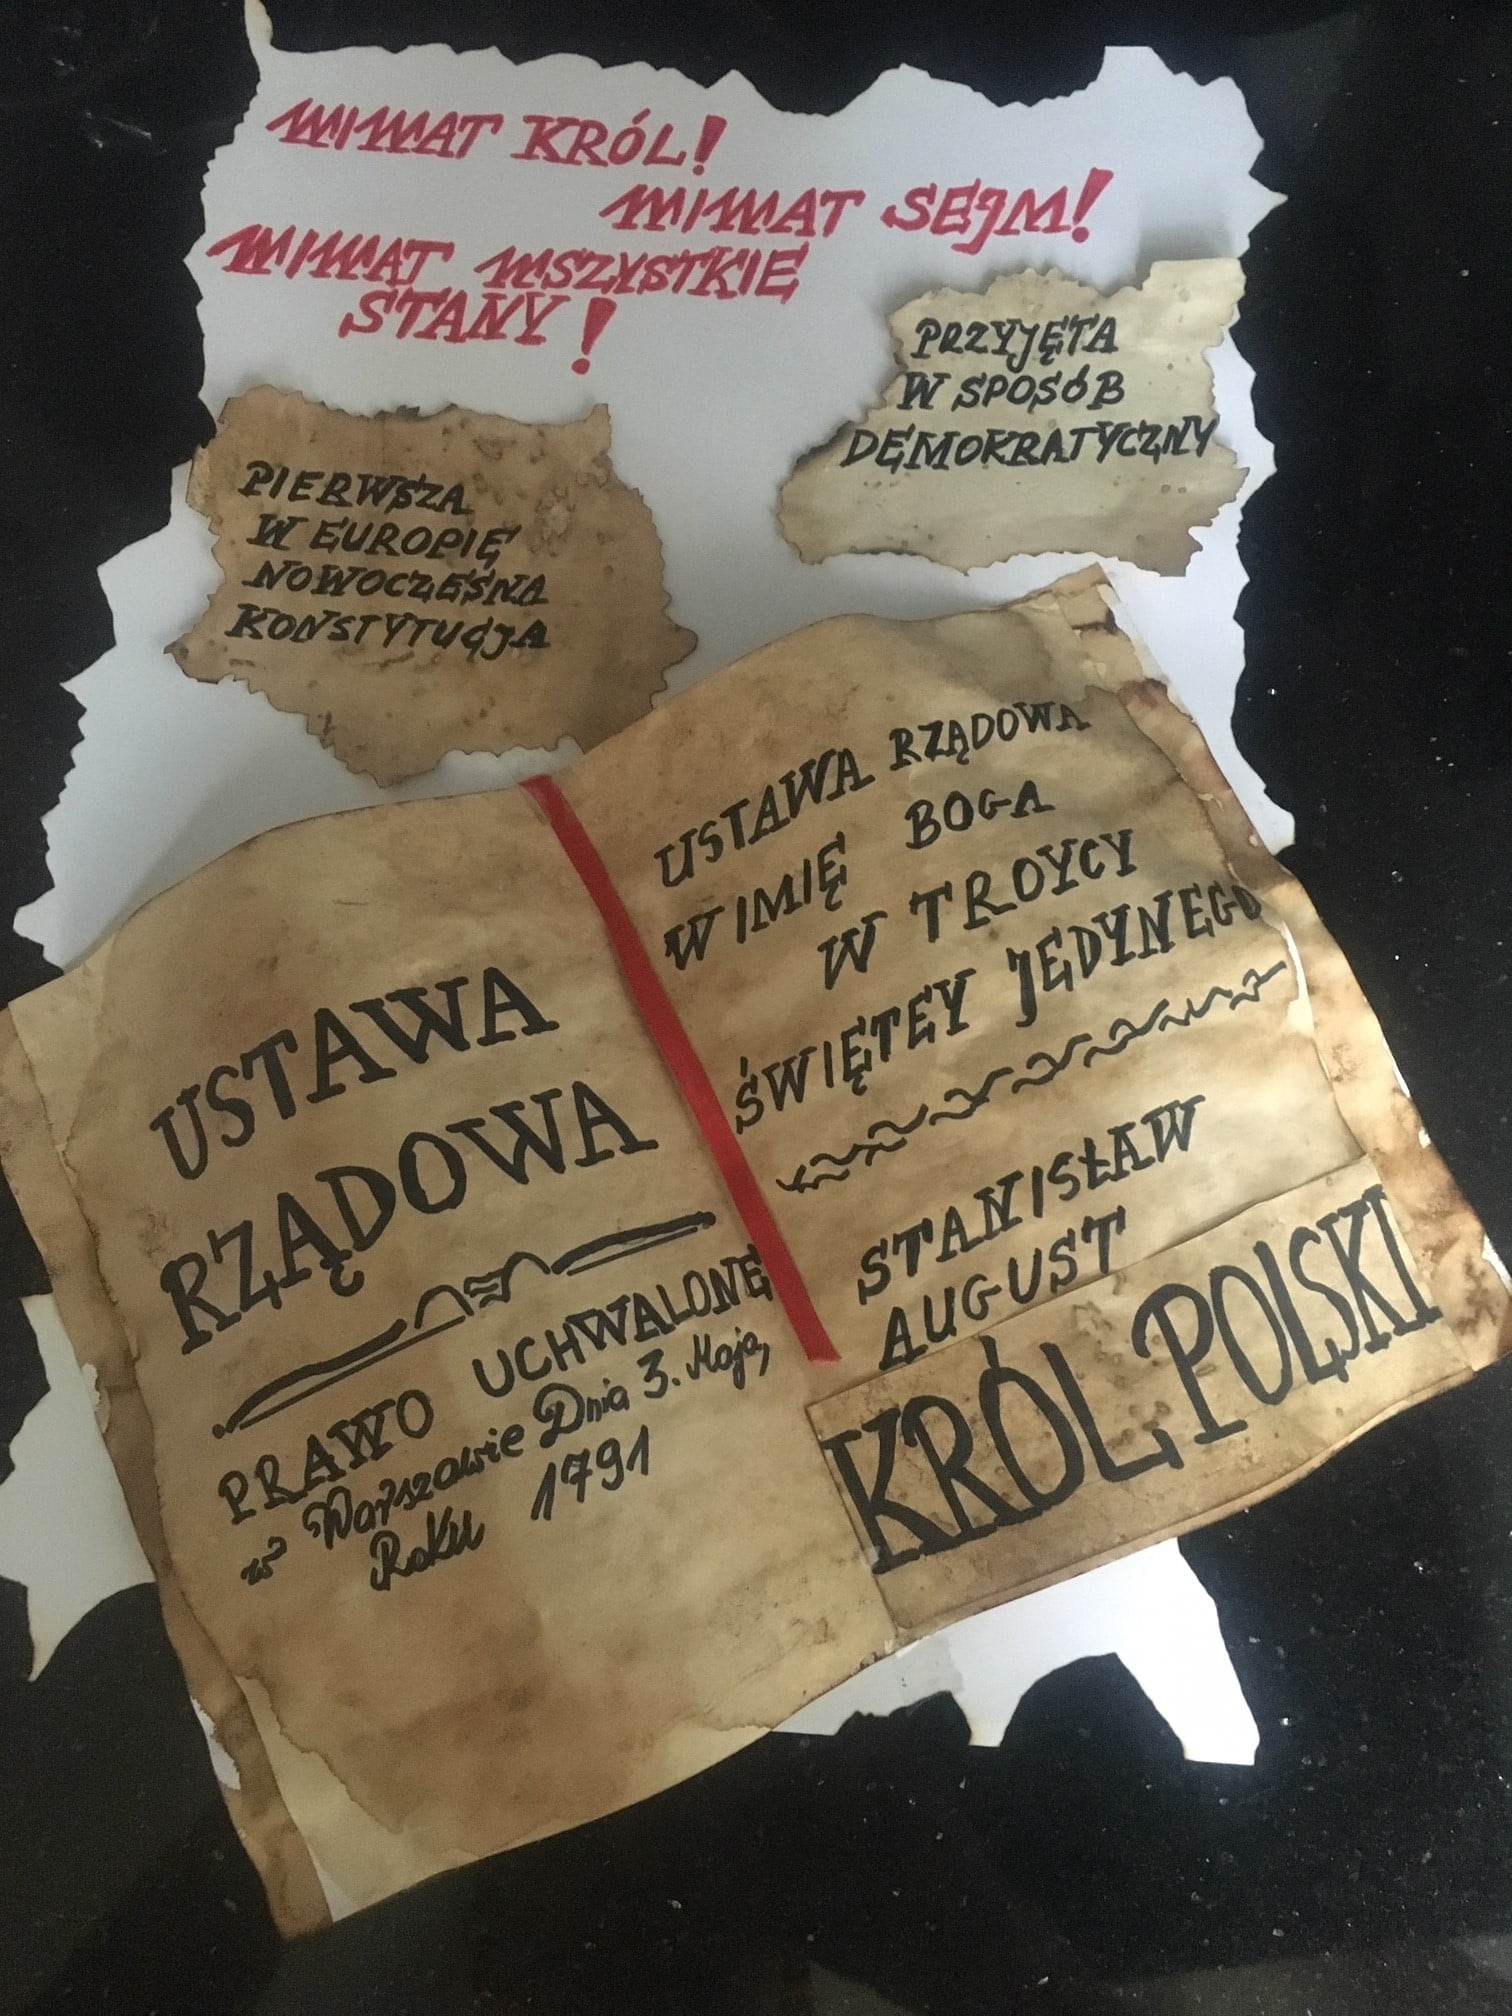 WIWAT KRÓL!
WIWAT SEJM!
WIWAT WSZYSTKIE
STANY!
PRZYJĘTA
W SPOSÓB
DEMOKRATYCZNY
PIERWSZA
W EUROPIE
NOWOCZESNA
KONSTYTUCJA
USTAWA
RZĄDOWA
PRAWO UCHWALONE
w Warszawie Dnia 3. Maja,
Roku 1791
USTAWA RZĄDOWA
W IMIĘ BOGA
W TROYCY
ŚWIĘTEY JEDYNEGO
STANISŁAW
AUGUST
KRÓL POLSKI